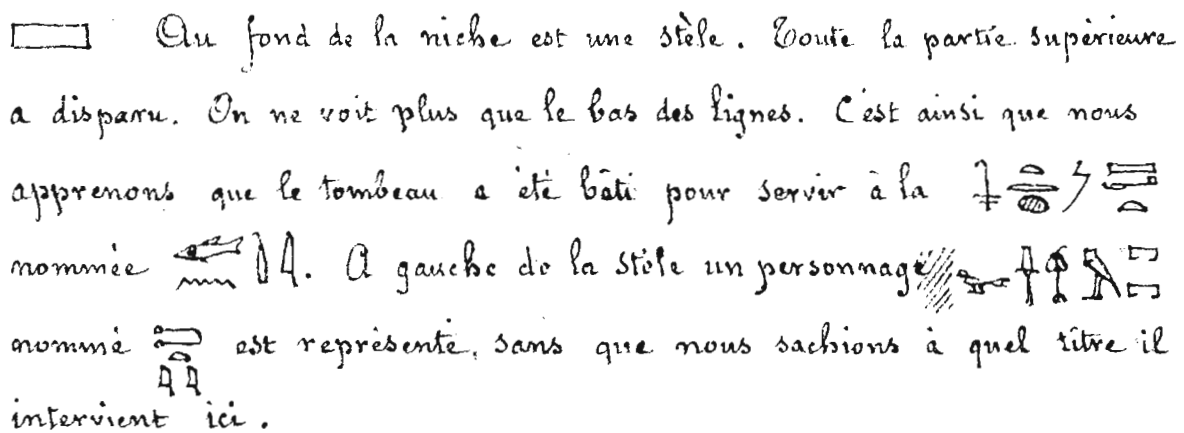 Au fond de la niche est une stèle. Toute la partie supérieure
a disparu. On ne voit plus que le bas des lignes. C'est ainsi que nous
apprenons que le tombeau a été bâti pour servir à la
nommée . A gauche de la stèle un personnage
nommé est représenté, sans que nous sachions à quel titre il
intervient ici.